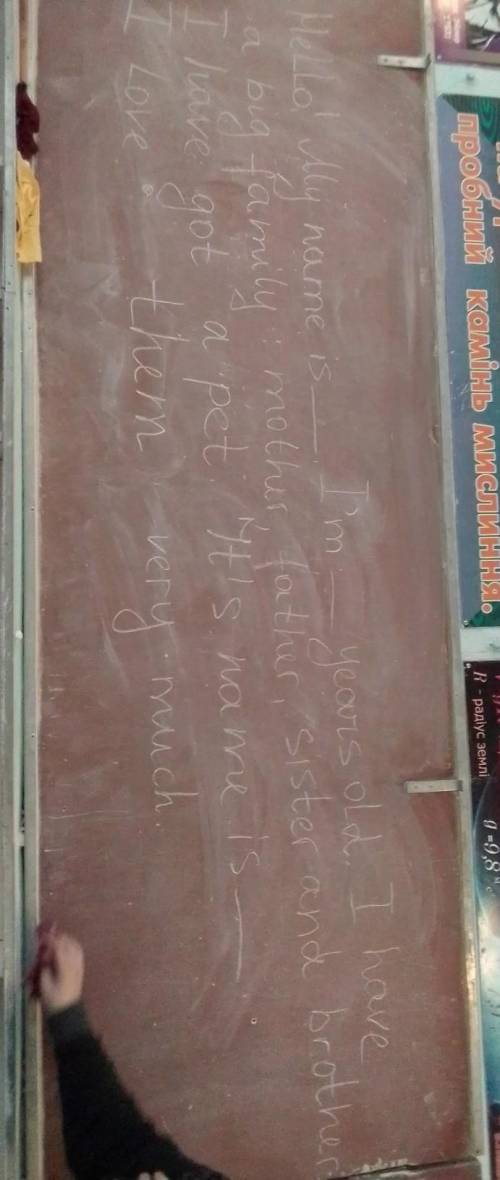 пробний камінь мислення.
R - радіус землі
g = 9,8
Hello! My name is __. I'm __ years old. I have
a big family: mother, father, sister and brother
I have got a pet. It's name is __
I love them very much.